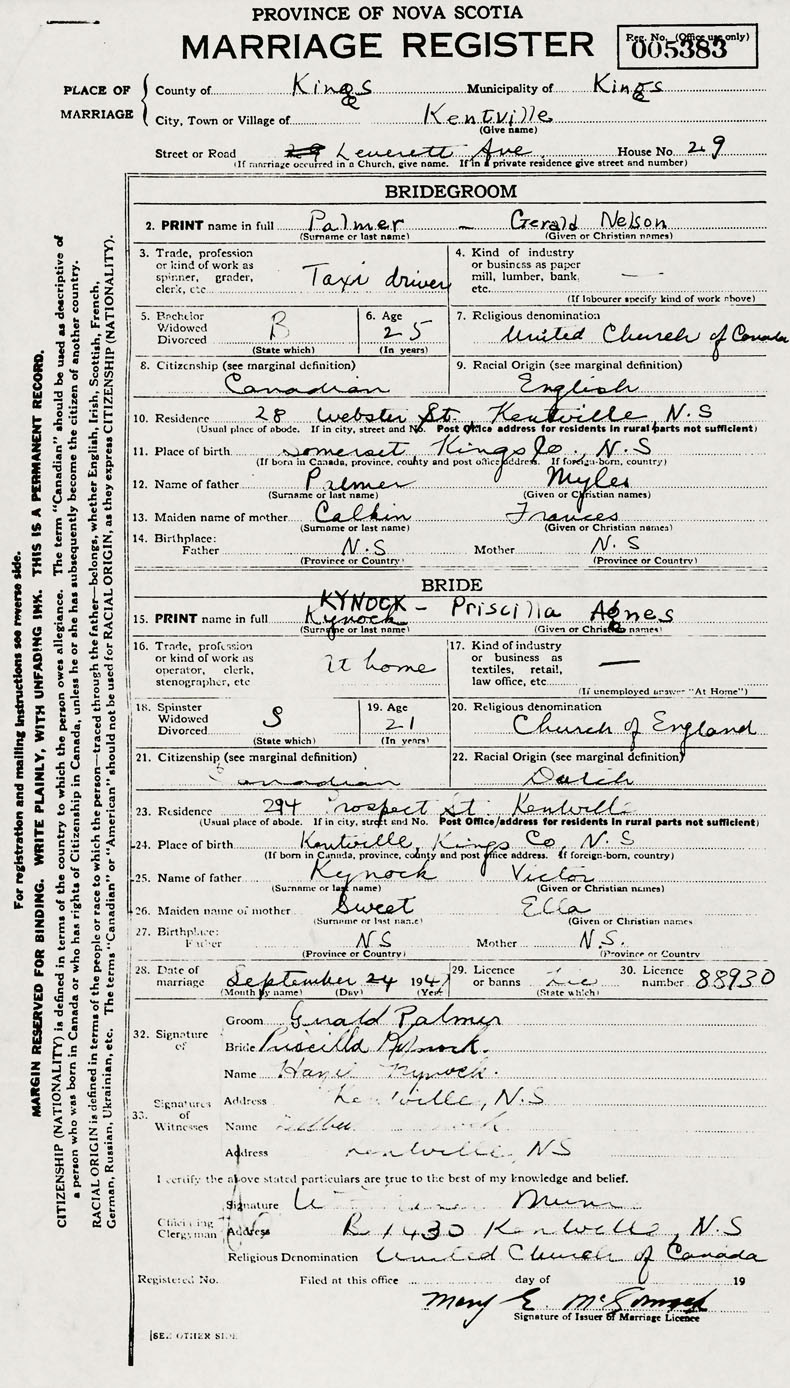 PROVINCE OF NOVA SCOTIA
MARRIAGE REGISTER
Reg. No. (Office use only)
005383
PLACE OF MARRIAGE
County of Kings Municipality of Kings
City, Town or Village of Kentville
(Give name)
Street or Road 29 Leverett Ave. House No. 29
(If marriage occurred in a Church, give name. If in a private residence give street and number)
BRIDEGROOM
2. PRINT name in full Palmer – Gerald Nelson
(Surname or last name) (Given or Christian names)
3. Trade, profession 4. Kind of industry
or kind of work as or business as paper
spinner, grader, Taxi driver mill, lumber, bank, —
clerk, etc. etc.
(If labourer specify kind of work above)
5. Bachelor 6. Age 7. Religious denomination
Widowed B 25 United Church of Canada
Divorced
(State which) (In years)
8. Citizenship (see marginal definition) 9. Racial Origin (see marginal definition)
Canadian English
10. Residence 28 Webster St. Kentville N.S
(Usual place of abode. If in city, street and No. Post Office address for residents in rural parts not sufficient)
11. Place of birth Somerset, Kings Co., N.S
(If born in Canada, province, county and post office address. If foreign-born, country)
12. Name of father Palmer Myles
(Surname or last name) (Given or Christian names)
13. Maiden name of mother Calkin Frances
(Surname or last name) (Given or Christian names)
14. Birthplace:
Father N.S Mother N.S
(Province or Country) (Province or Country)
BRIDE
KYNOCK – Priscilla Agnes
15. PRINT name in full Kynock
(Surname or last name) (Given or Christian names)
16. Trade, profession 17. Kind of industry
or kind of work as or business as
operator, clerk, At home textiles, retail, —
stenographer, etc law office, etc.
(If unemployed answer "At Home")
18. Spinster 19. Age 20. Religious denomination
Widowed S 21 Church of England
Divorced
(State which) (In years)
21. Citizenship (see marginal definition) 22. Racial Origin (see marginal definition)
Canadian Dutch
23. Residence 294 Prospect St. Kentville
(Usual place of abode. If in city, street and No. Post Office address for residents in rural parts not sufficient)
24. Place of birth Kentville, Kings Co, N.S
(If born in Canada, province, county and post office address. If foreign-born, country)
25. Name of father Kynock Victor
(Surname or last name) (Given or Christian names)
26. Maiden name of mother Sweet Ella
(Surname or last name) (Given or Christian names
27. Birthplace:
Father NS Mother N.S.
(Province or Country) (Province or Country
28. Date of marriage September 24 1947 29. Licence or banns Lic 30. Licence number 88930
(Month by name) (Day) (Year) (State which)
32. Signature of
Groom Gerald Palmer
Bride Priscilla Kynock.
33. Signatures of Witnesses
Name Kynock.
Address Kentville, N.S
Name
Address Kentville, NS
I certify the above stated particulars are true to the best of my knowledge and belief.
Officiating Clergyman
Signature
Address B 1430 Kentville, N.S
Religious Denomination United Church of Canada
Registered No. Filed at this office day of 19
Mary E.
Signature of Issuer of Marriage Licence
[SEE OTHER SIDE
For registration and mailing instructions see reverse side.
MARGIN RESERVED FOR BINDING. WRITE PLAINLY, WITH UNFADING INK. THIS IS A PERMANENT RECORD.
CITIZENSHIP (NATIONALITY) is defined in terms of the country to which the person owes allegiance. The term "Canadian" should be used as descriptive of
a person who was born in Canada or who has rights of Citizenship in Canada, unless he or she has subsequently become the citizen of another country.
RACIAL ORIGIN is defined in terms of the people or race to which the person—traced through the father—belongs, whether English, Irish, Scottish, French,
German, Russian, Ukrainian, etc. The terms "Canadian" or "American" should not be used for RACIAL ORIGIN, as they express CITIZENSHIP (NATIONALITY).